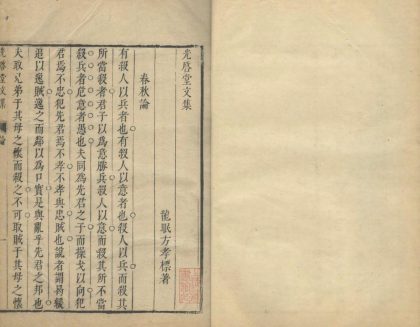 光啓堂文集
龍眠方孝標著
春秋論
有殺人以兵者也有殺人以意者也殺人以兵而殺其
所當殺者君子以為意勝兵殺人以意而殺其所不當
殺兵者危意者愚也夫同為先君之子而操戈以向犯
君焉不忠犯先君焉不孝不孝與忠賊也說者謂易緩
追以逸賊之而鄢以為口實是與亂乎先君之邦也
夫取兄弟于其母之懷而殺之不可取賊于其母之懷
光啓堂文集 論 一